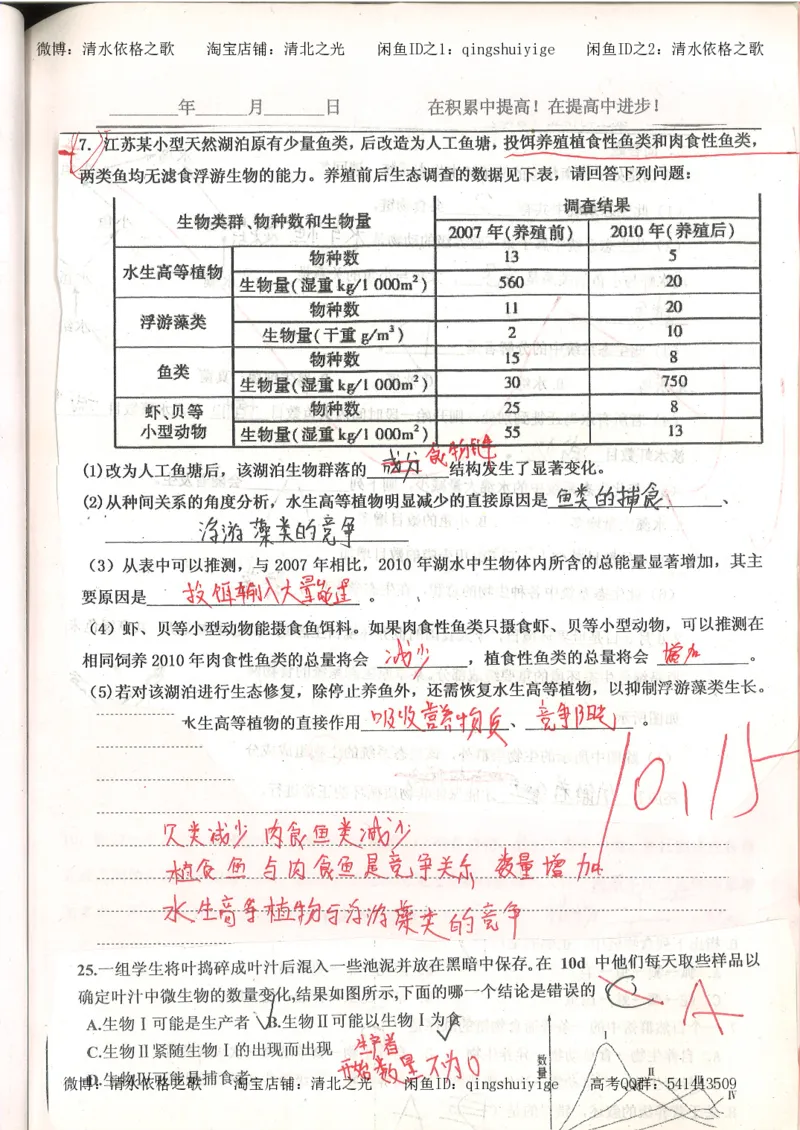 微博：清水依格之歌 淘宝店铺：清北之光 闲鱼ID之1：qingshuiyige 闲鱼ID之2：清水依格之歌
年 月 日 在积累中提高！在提高中进步！
7. 江苏某小型天然湖泊原有少量鱼类，后改造为人工鱼塘，投饵养殖植食性鱼类和肉食性鱼类，
两类鱼均无滤食浮游生物的能力。养殖前后生态调查的数据见下表，请回答下列问题：
生物类群、物种数和生物量 调查结果
2007年(养殖前) 2010年(养殖后)
水生高等植物 物种数 13 5
生物量(湿重 kg/1 000m²) 560 20
浮游藻类 物种数 11 20
生物量(干重 g/m³) 2 10
鱼类 物种数 15 8
生物量(湿重 kg/1 000m²) 30 750
虾、贝等小型动物 物种数 25 8
生物量(湿重 kg/1 000m²) 55 13
(1)改为人工鱼塘后，该湖泊生物群落的 成分 食物链 结构发生了显著变化。
(2)从种间关系的角度分析，水生高等植物明显减少的直接原因是 鱼类的捕食 、
浮游藻类的竞争
（3）从表中可以推测，与 2007 年相比，2010 年湖水中生物体内所含的总能量显著增加，其主
要原因是 投饵输入大量能量 。
（4）虾、贝等小型动物能摄食鱼饵料。如果肉食性鱼类只摄食虾、贝等小型动物，可以推测在
相同饲养 2010 年肉食性鱼类的总量将会 减少 ，植食性鱼类的总量将会 增加 。
(5)若对该湖泊进行生态修复，除停止养鱼外，还需恢复水生高等植物，以抑制浮游藻类生长。
水生高等植物的直接作用 吸收营养物质 、 竞争阳光 。
10,15
贝类减少 肉食鱼类减少
植食鱼与肉食鱼是竞争关系 数量增加
水生高等植物与浮游藻类的竞争
25.一组学生将叶捣碎成叶汁后混入一些池泥并放在黑暗中保存。在 10d 中他们每天取些样品以
确定叶汁中微生物的数量变化,结果如图所示,下面的哪一个结论是错误的 C A
A.生物Ⅰ可能是生产者 B.生物Ⅱ可能以生物Ⅰ为食
C.生物Ⅱ紧随生物Ⅰ的出现而出现
生产者
开始数量不为0
D.生物Ⅳ可能是捕食者
数量
Ⅰ
Ⅱ
Ⅲ
Ⅳ
微博：清水依格之歌 淘宝店铺：清北之光 闲鱼ID之2：qingshuiyige 高考QQ群：541443509